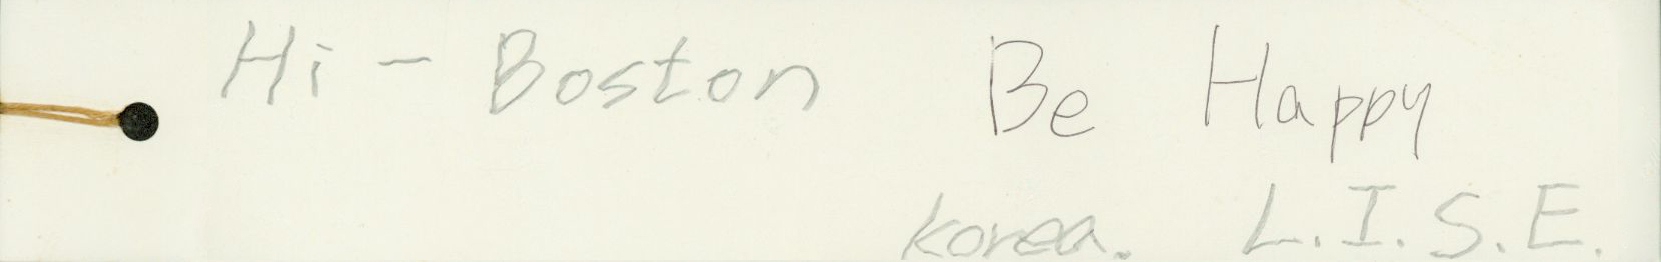 Hi - Boston Be Happy
Korea. L.I.S.E.